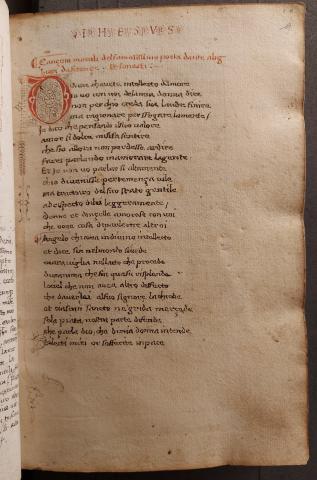 ·Y·H·E·S·V·S·
Cançone morale del famosissimo poeta dante alig
da firenze. Et sonetti
Donne chavete intelletto damore
Io vo con voi dela mia donna dire
non perchio creda sua laude finire
ma ragionare per sfogare lamente /
Io dico che pensando alsuo valore
amor si dolce misifa sentire
che sio allora non perdesse ardire
farei parlando innamorare lagente
Et Io non vo parlar si altamente
chio divenisse pertemença vile
ma tractero del suo stato gentile
adrespecto dilei leggeramente /
donne et donçelle amorose con voi
che none cosa daparlarne altrui
Angelo chiama indivino intellecto
et dice sire nelmondo sivede
maraviglia nellacto che procede
duna anima chefin quassu risplende
Locel che non avea altro difecto
che daverlei alsuo signore lachiede
et ciascun sancto ne grida merçede
Sola pieta nostra parte difende
che parla dio, che dimia donna intende
Dilecti miei or sofferite inpace